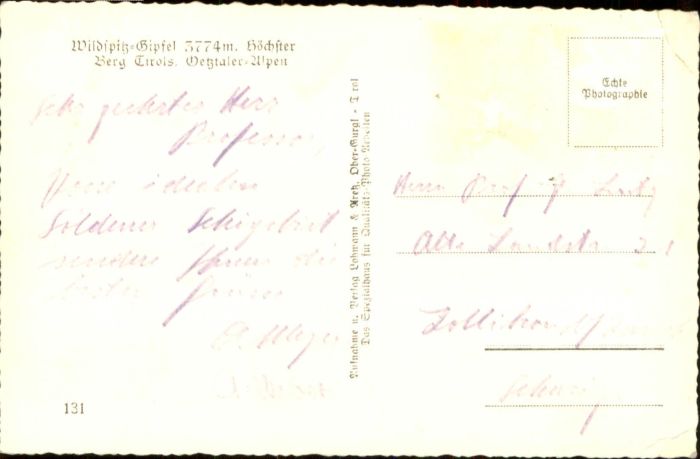 Wildspitz-Gipfel 3774m. Höchster
Berg Tirols. Oetztaler-Alpen
Sehr geehrter Herr
Professor,
Vom idealen
Söldener Schigebiet
sende Ihnen die
besten Grüsse
131
Aufnahme u. Verlag Lohmann & Kretz, Ober-Gurgl - Tirol
Das Spezialhaus für Qualitäts-Photo-Arbeiten
Echte
Photographie
Herrn Prof.
Alte Landstr.
Zollikon
Schweiz